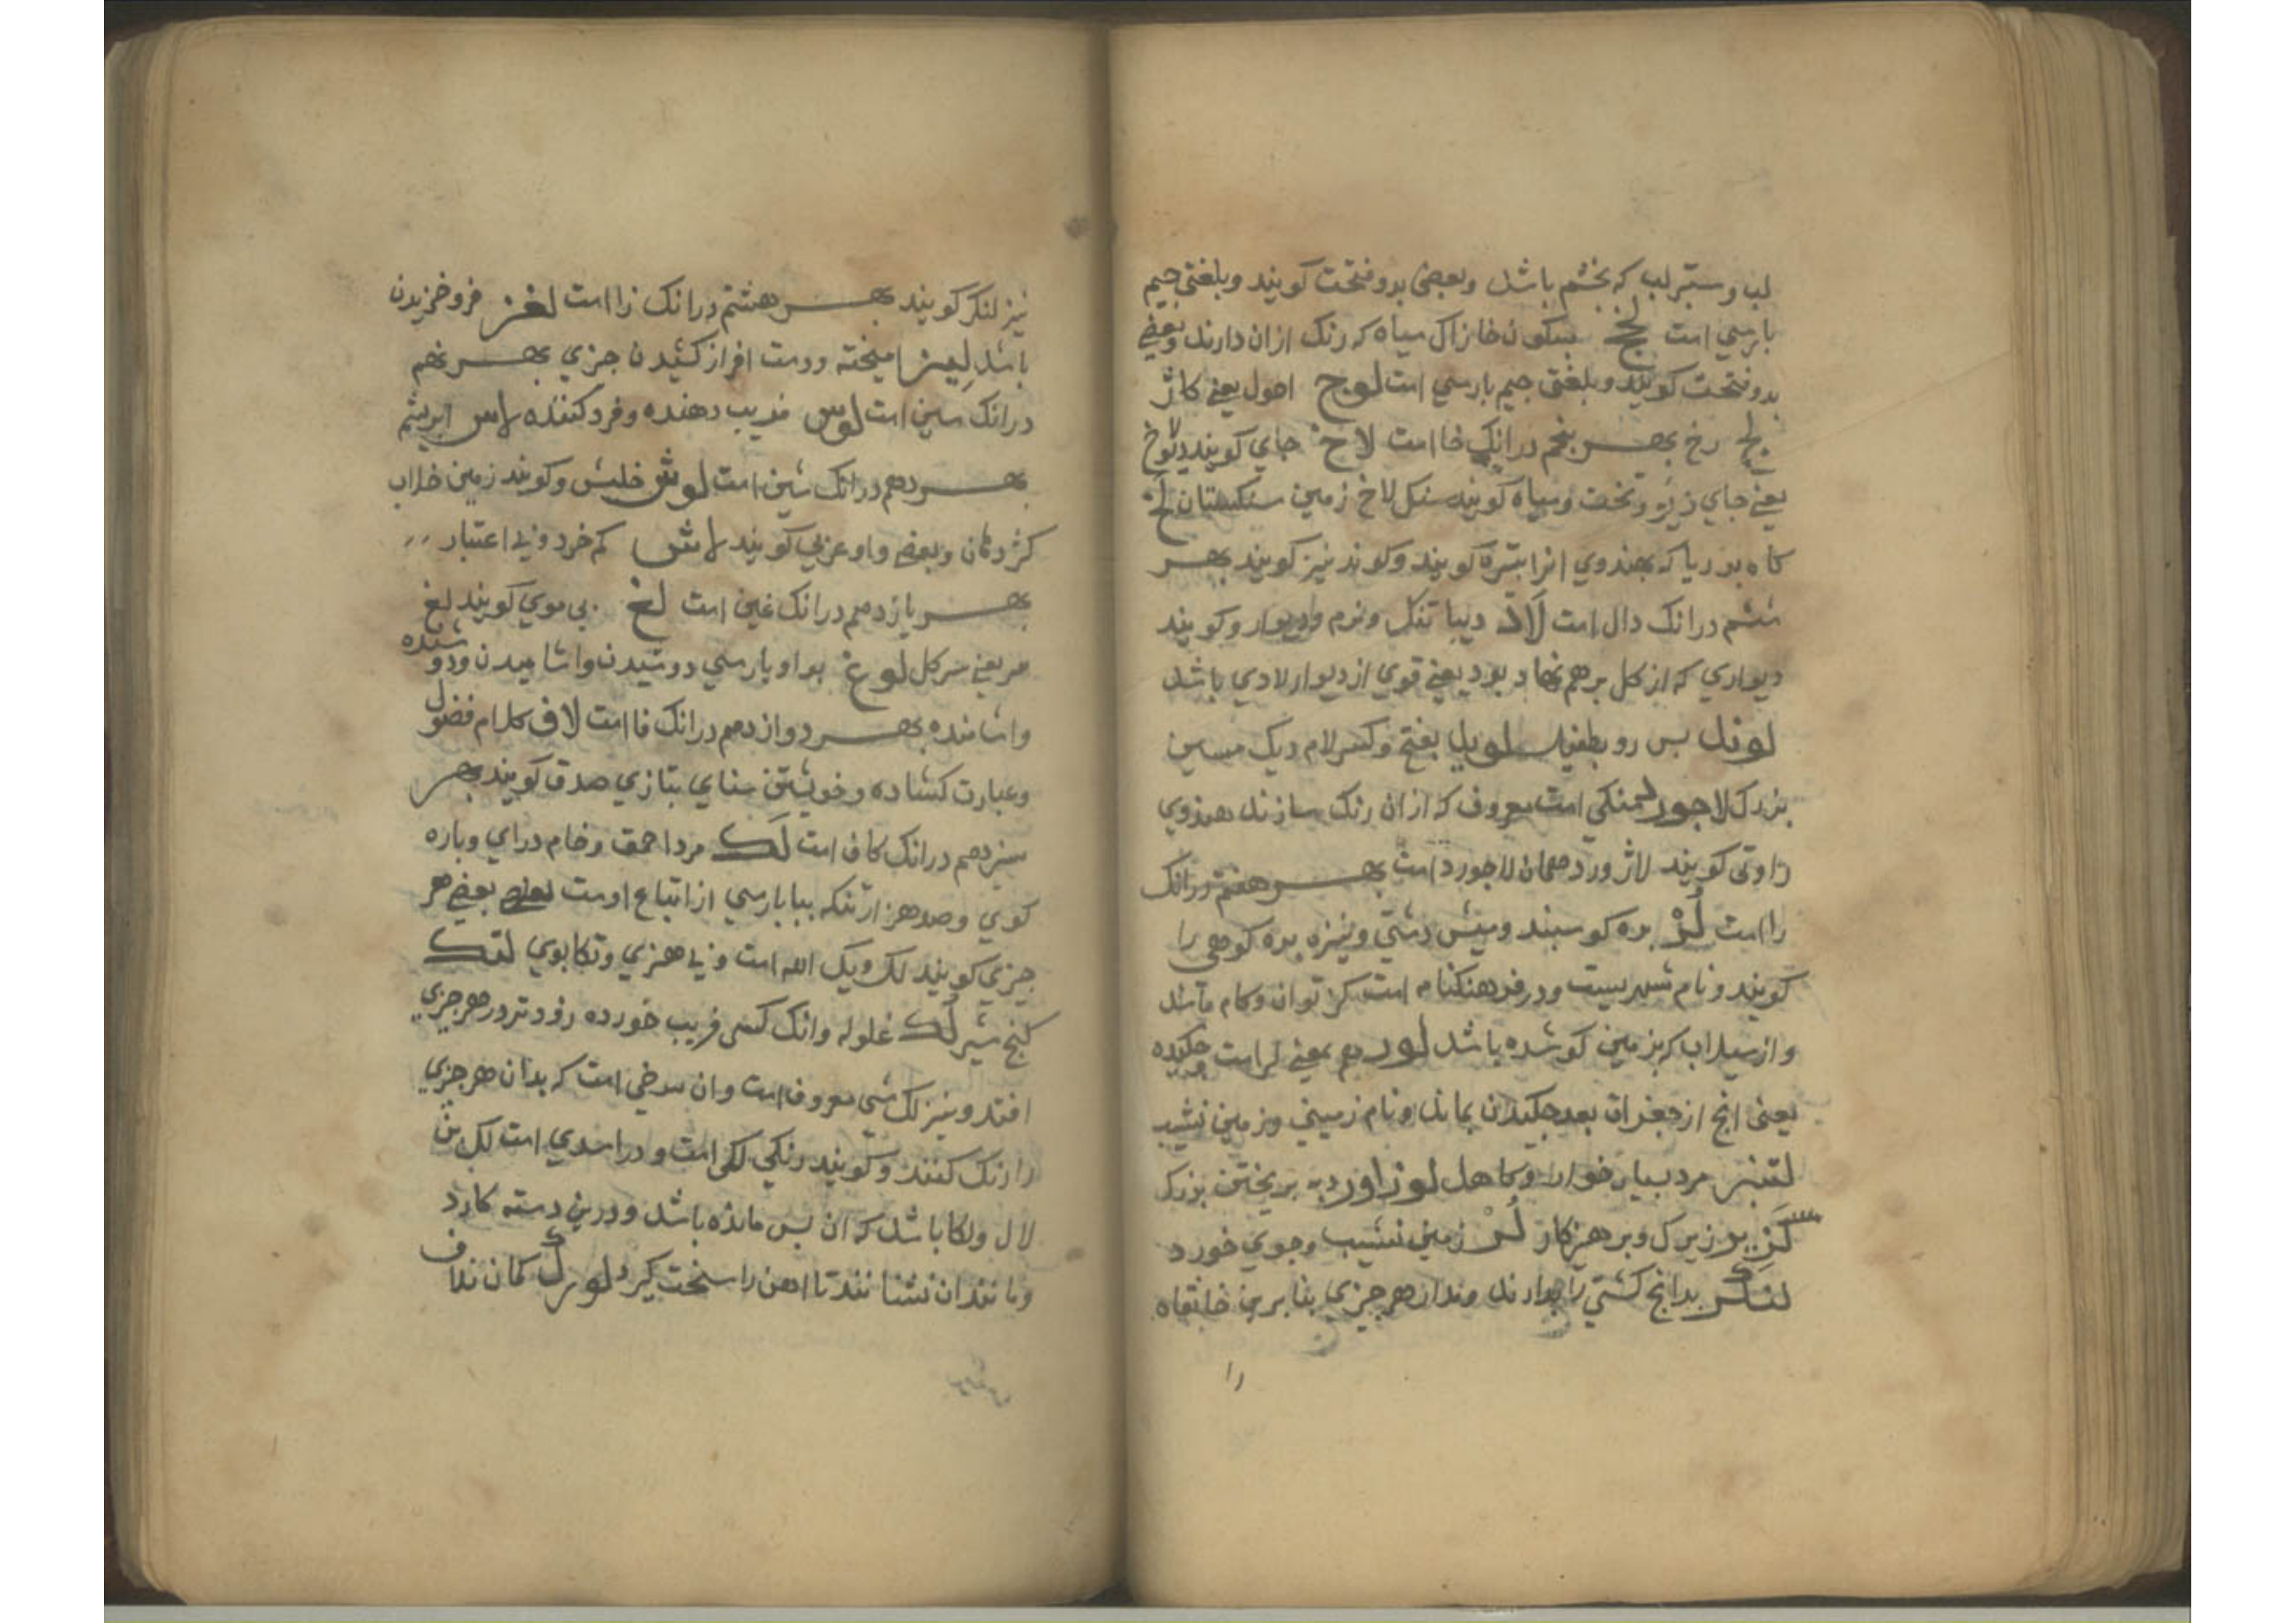 لب و ستبر لب که بخشم باشد و بعضی بدو فتحت کویند و بلغتی جیم
بارسی است لخج بسکون خا زاک سیاه که رنک ازان دارند و بعضی
بدو فتحت کویند و بلغتی جیم بارسی است لوج احول یعنی کاژ
لج رخ بهر بنجم درانک خا است لاخ جای کویند دیولاخ
یعنی جای دیو و تخت و سیاه کویند سنکلاخ زمین سنکستان لخ
کاه بوریا که بهندوی انرا بتره کویند و کوند نیز کویند بهر
ششم درانک دال است لاد دیبا تنک و نرم و دیوار و کویند
دیواری که از کل بر هم نهاد بود یعنی قوی از دیوار لادی باشد
لوند بس رو بطفیل لوید بفتح و کسر لام دیک مسین
بزرک لاجورد سنکی است معروف که ازان رنک سازند هندوی
راوتی کویند لاژورد همان لاجورد است بهر هفتم درانک
را است لر بره کوسبند و میش دشتی و نیزه بره کوهی را
کویند و نام شهریست و در فرهنکنام است کر توان و کام باشد
و از سیلاب که بزمین کو شده باشد لور هم بمعنی لر است چکیده
یعنی انج از جغرات بعد جکیدن بماند و نام زمینی و زمین نشیب
لتنبر مرد بسیار خوار و کاهل لوزاور دبه بریختن بزرک
لزیر زیرک و برهیزکار لر زمین نشیب و جوی خورد
لنکر بدانج کشتی را بدارند و مدار هر جیزی بنابرین خانقاه
را
نیز لنکر کویند بهر هشتم درانک زا است لغز فرو خزیدن
باشد لیز امیخته و دست افراز کشیدن جیزی بهر نهم
درانک سین است لوس فریب دهنده و فرد کننده لاس ابریشم
بهر دهم درانک شین است لوش خلیش و کویند زمین خلاب
کژ دهان و بعضی واو عربی کویند لاش کم خرد و بی اعتبار
بهر یازدهم درانک غین است لغ بی موی کویند لغ
سر یعنی سر کل لوغ بواو بارسی دوشیدن و اشامیدن و دوشنده
و اشامنده بهر دوازدهم درانک فا است لاف کلام فضول
و عبارت کشاده و خویشتن ستای بتازی صدق کویند بهر
سیزدهم درانک کاف است لک مرد احمق و خام درای و باره
کوی و صد هزار تنکه ببا بارسی از اتباع اوست یعنی بعضی هر
جیزی کویند لک وبک الله است و بی هنری و تکابوی لتک
کنج شیر لک غلوله و انک کسی فریب خورده زود تر در هر جیزی
افتد و نیز لک شی معروف است و ان سرخی است که بدان هر جیزی
را رنک کنند و کویند رنکی لکی است و در اسدی است لک بن
لال و لکا باشد که ان بس مانده باشد و درین دسته کارد
و مانند ان نشانند تا اهن را سخت کیرد لورک کمان نداف